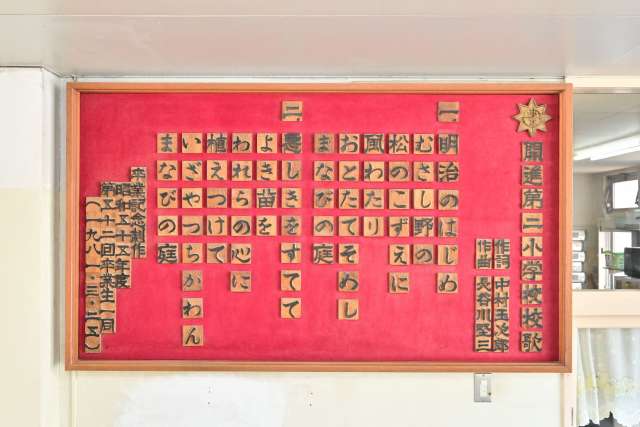 開進第二小学校校歌
作詞 中村玉次郎
作曲 長谷川堅三
一
明治のはじめ
むさし野の
松のこずえに
風わたり
おとたてそめし
まなびの庭
二
悪しきをすてて
よき苗を
われらの心に
植えつけて
いざやつちかわん
まなびの庭
卒業記念制作
昭和五十五年度
第五十二回卒業生一同
(一九八一・三・二五)